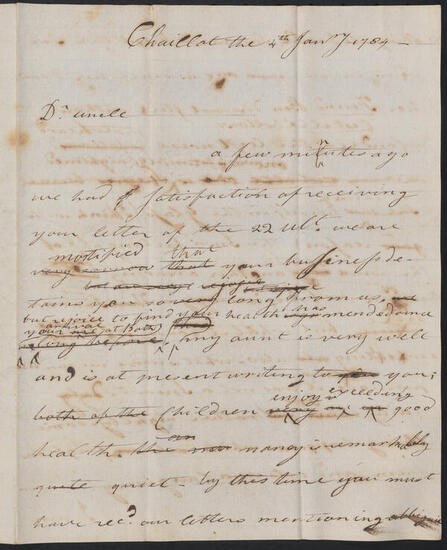 Chaillot the 4th Jany 1784 -
Dr. uncle
a few minutes ago
we had ye satisfaction of receiving
your letter of the 22 Ult. we are
mortified that
very that your business de-
tains you so very long from us,
but rejoice to find your health has mended since
your arrival at Bath
long before my aunt is very well
and is at present writing to you;
enjoy exceeding
both of the Children very good
health. an
the nancy is remarkably
quite quiet - by this time you must
have recd. our letters mentioning